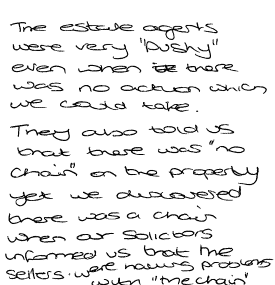 The estate agents
were very "pushy"
even when there
was no action which
we could take.
They also told us
that there was "no
chain" on the property
yet we discovered
there was a chain
when our solicitors
informed us that the
sellers were having problems
with "the chain"